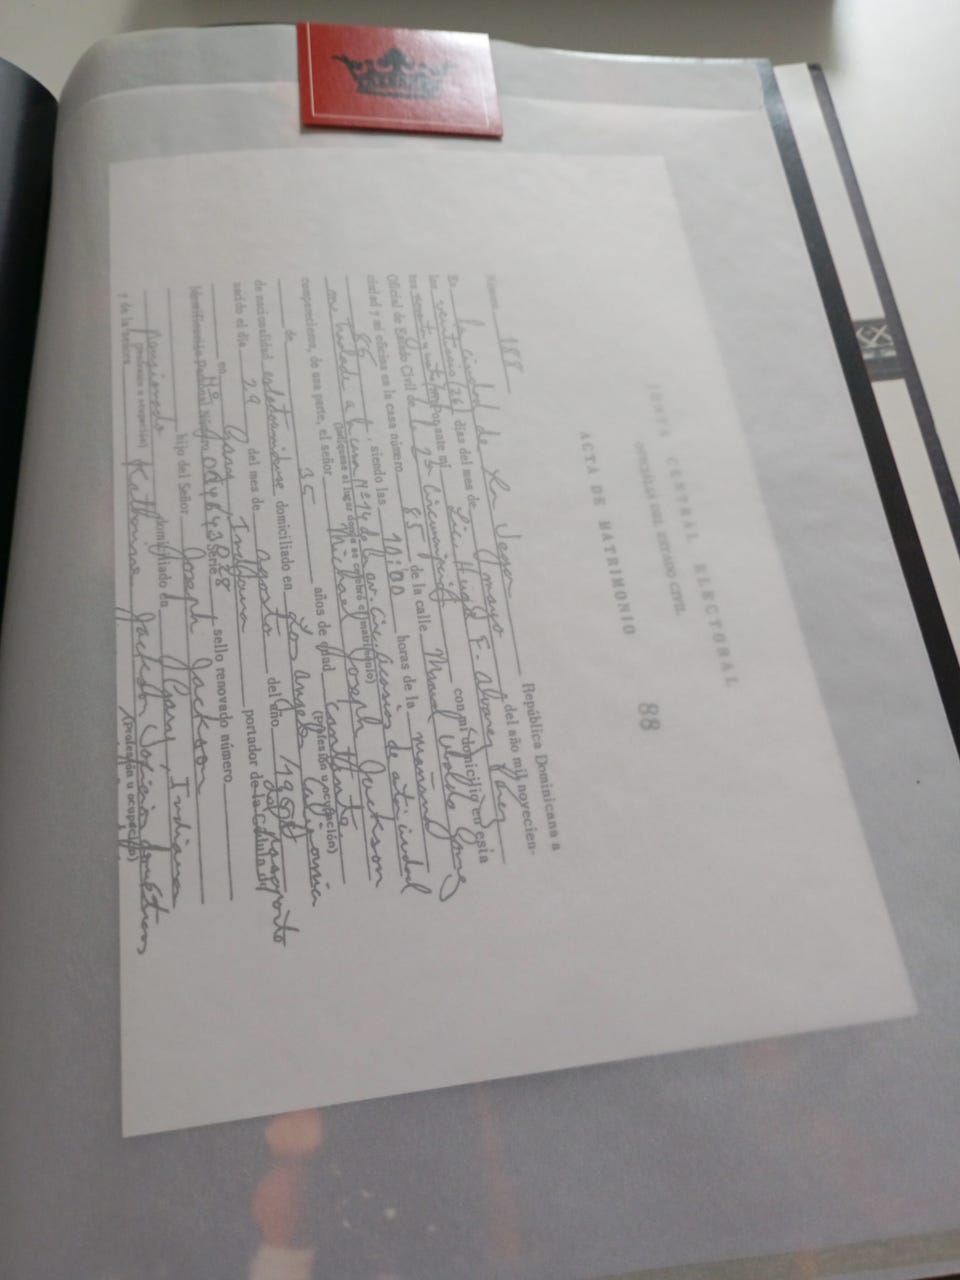 JUNTA CENTRAL ELECTORAL
OFICIALIA DEL ESTADO CIVIL
ACTA DE MATRIMONIO
88
Número 188
En la ciudad de La Vega República Dominicana a
los veintiseis (26) días del mes de Mayo del año mil novecien-
tos noventa y cuatro ante mí Lic. Hugo F. Alvarez Perez
Oficial de Estado Civil de la 2da Circunscripción con mi domicilio en esta
ciudad y mi oficina en la casa número 85 de la calle Manuel Ubaldo Gomez
85 , siendo las 10:00 horas de la mañana
me traslade a la casa Nº 14 de la av. Circunvación de esta ciudad
(Indíquese el lugar donde se celebró el matrimonio)
comparecieron, de una parte, el señor Michael Joseph Jackson
de 35 años de edad cantante
(Profesión u ocupación)
de nacionalidad estadounidense domiciliado en Los Angeles California
nacido el día 29 del mes de agosto del año 1958
en Gary, Indiana portador de la Cédula de
Identificación Personal Número Nº serie sello renovado número
hijo del Señor Joseph Jackson
domiciliado en Gary, Indiana
(profesión u ocupación)
y de la señora Katherine Jackson
(Profesión u ocupación)